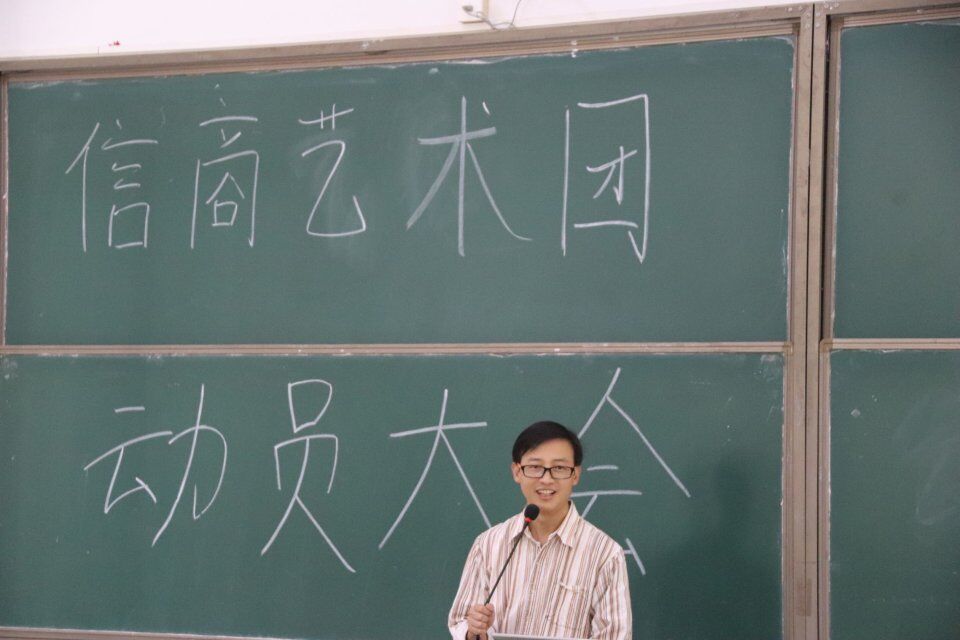 信商艺术团
动员大会